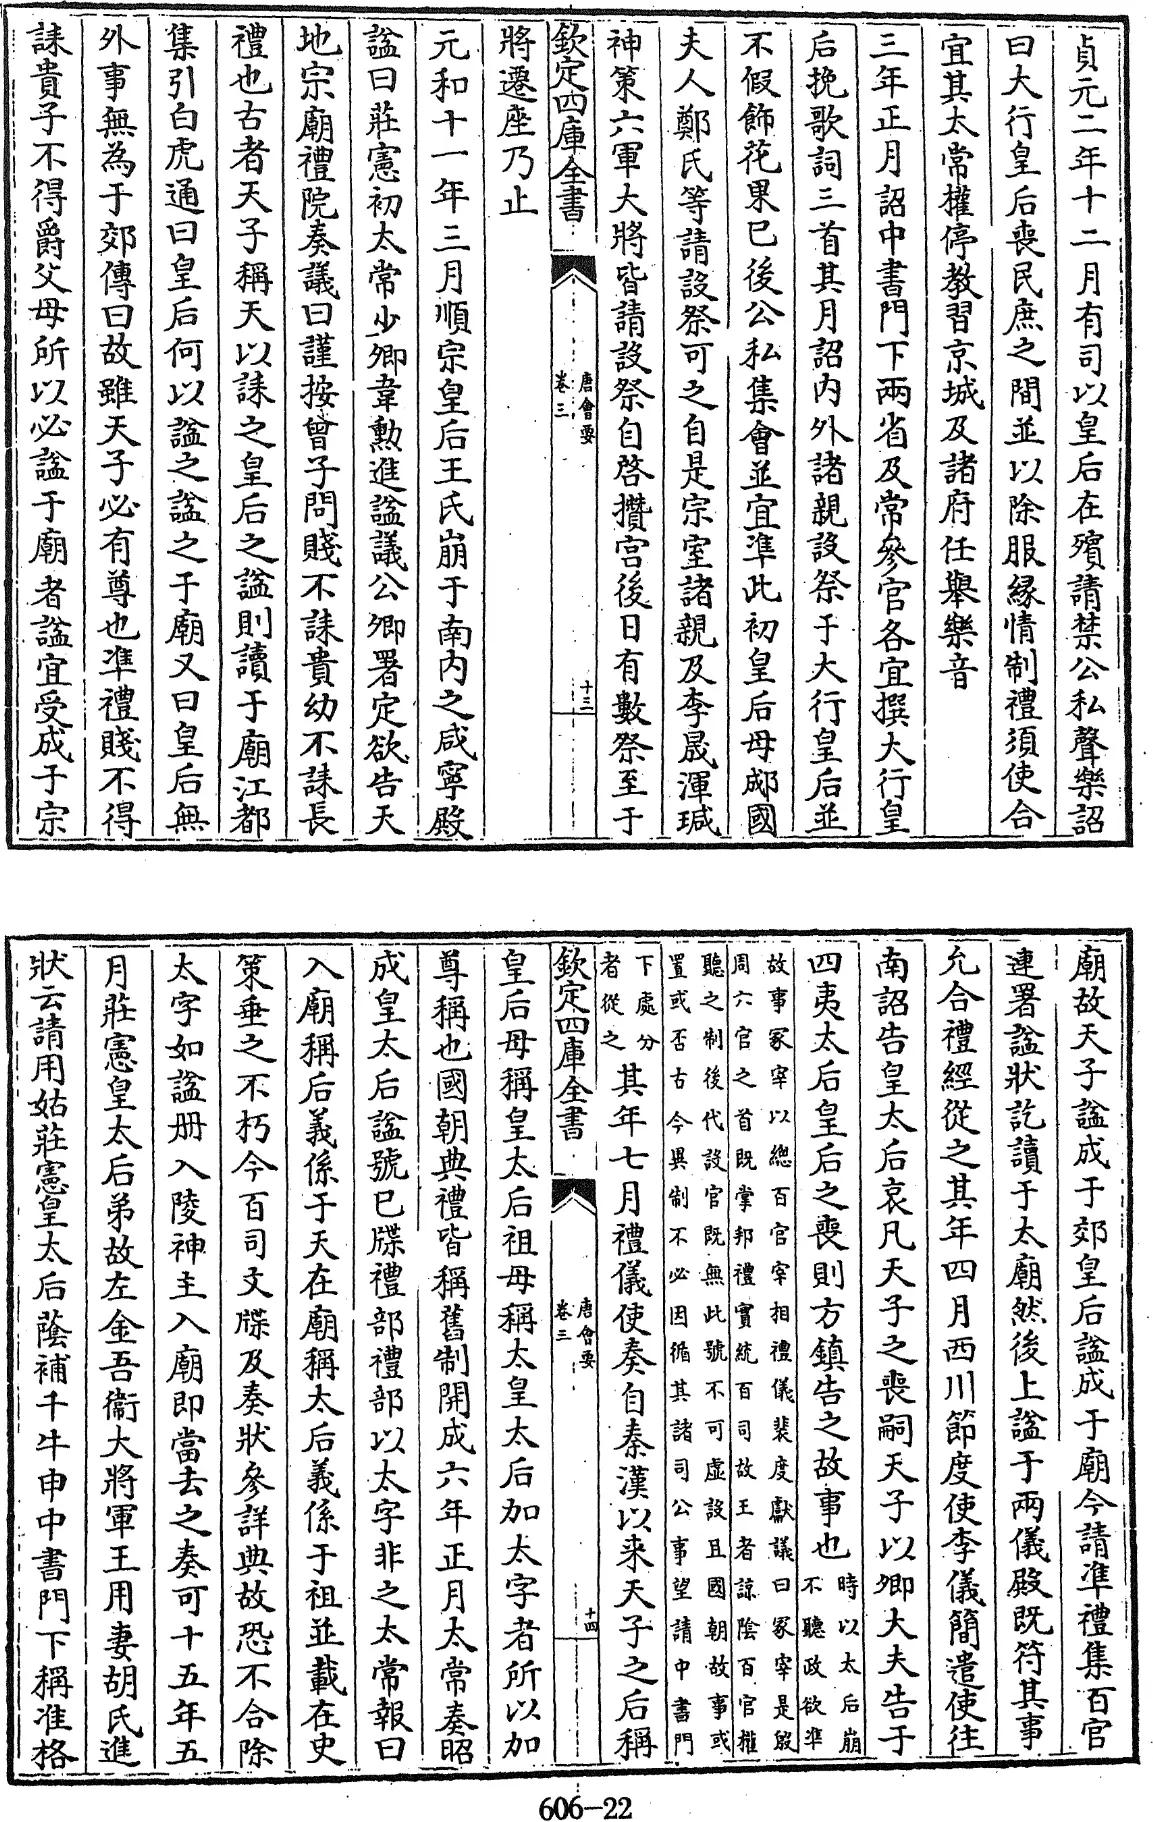 貞元二年十二月有司以皇后在殯請禁公私聲樂詔
曰大行皇后喪民庶之間並以除服縁情制禮須使合
宜其太常權停教習京城及諸府任舉樂音
三年正月詔中書門下兩省及常參官各宜撰大行皇
后挽歌詞三首其月詔内外諸親設祭于大行皇后並
不假飾花果已後公私集會並宜準此初皇后母郕國
夫人鄭氏等請設祭可之自是宗室諸親及李晟渾瑊
神策六軍大將皆請設祭自啓攢宫後日有數祭至于
欽定四庫全書
唐會要
卷三
十三
將遷座乃止
元和十一年三月順宗皇后王氏崩于南内之咸寧殿
諡曰莊憲初太常少卿韋勲進諡議公卿署定欲告天
地宗廟禮院奏議曰謹按曾子問賤不誄貴幼不誄長
禮也古者天子稱天以誄之皇后之諡則讀于廟江都
集引白虎通曰皇后何以諡之諡之于廟又曰皇后無
外事無為于郊傳曰故雖天子必有尊也準禮賤不得
誄貴子不得爵父母所以必諡于廟者諡宜受成于宗
廟故天子諡成于郊皇后諡成于廟今請準禮集百官
連署諡狀訖讀于太廟然後上諡于兩儀殿既符其事
允合禮經從之其年四月西川節度使李儀簡遣使往
南詔告皇太后哀凡天子之喪嗣天子以卿大夫告于
四夷太后皇后之喪則方鎮告之故事也
時以太后崩
不聽政欲準
故事冢宰以總百官宰相禮儀裴度獻議曰冢宰是殷
周六官之首既掌邦禮實統百司故王者諒陰百官權
聽之制後代設官既無此號不可虛設且國朝故事或
置或否古今異制不必因循其諸司公事望請中書門
下處分
者從之
其年七月禮儀使奏自秦漢以来天子之后稱
欽定四庫全書
唐會要
卷三
十四
皇后母稱皇太后祖母稱太皇太后加太字者所以加
尊稱也國朝典禮皆稱舊制開成六年正月太常奏昭
成皇太后諡號已牒禮部禮部以太字非之太常報曰
入廟稱后義係于天在廟稱太后義係于祖並載在史
策垂之不朽今百司文牒及奏狀參詳典故恐不合除
太字如諡册入陵神主入廟即當去之奏可十五年五
月莊憲皇太后弟故左金吾衞大將軍王用妻胡氏進
狀云請用姑莊憲皇太后蔭補千牛申中書門下稱准格
606-22